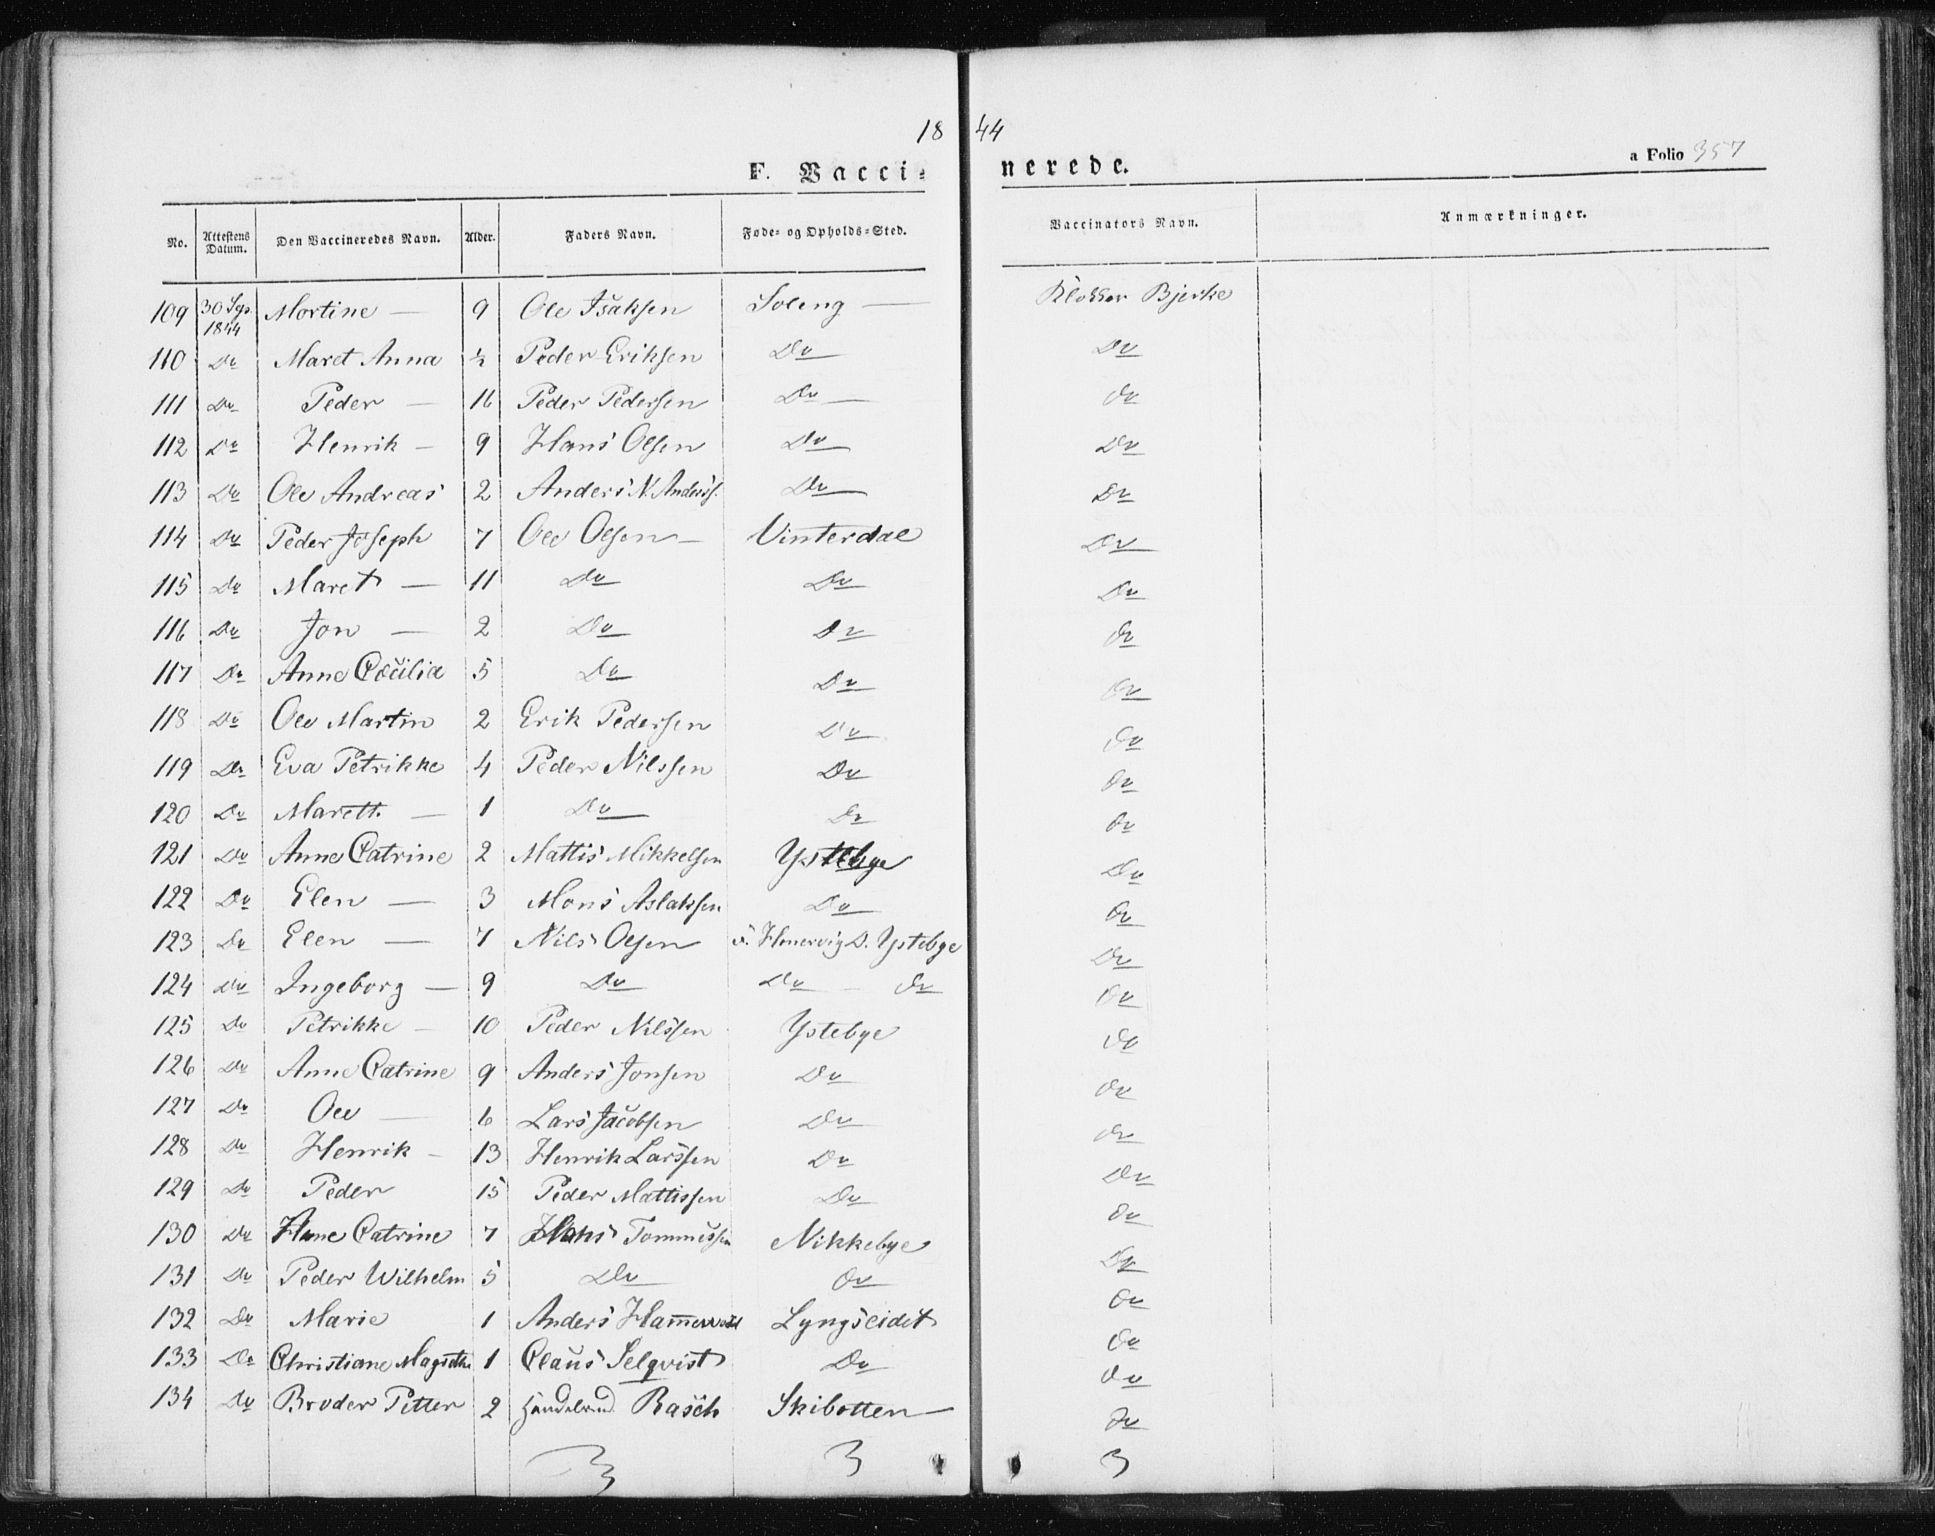 18 44
F. Vacci- nerede.
a Folio 357
No. Attestens Datum. Den Vaccineredes Navn. Alder. Faders Navn. Føde- og Opholds-Sted. Vaccinators Navn. Anmærkninger.
109 30 Sep. 1844 Mortine — 9 Ole Isaksen Soleng — Klokker Bjerke
110 Do Maret Anna ½ Peder Eriksen Do Do
111 Do Peder — 16 Peder Pedersen Do — Do
112 Do Henrik — 9 Hans Olsen Do Do
113 Do Ole Andreas 2 Anders N. Anderss. Do Do
114 Do Peder Joseph 7 Ole Olsen — Vinterdal Do
115 Do Maret — 11 Do Do Do
116 Do Jon — 2 Do Do Do
117 Do Anne Cæcilia 5 Do Do Do
118 Do Ole Martin 2 Erik Pedersen Do Do
119 Do Eva Petrikke 4 Peder Nilssen Do Do
120 Do Marett. — 1 Do Do Do
121 Do Anne Catrine 2 Mattis Mikkelsen Ystebye Do
122 Do Elen — 3 Mons Aslaksen Do Do
123 Do Elen — 7 Nils Olsen O. Ystebye Do
124 Do Ingeborg — 9 Do Do — Do Do
125 Do Petrikke — 10 Peder Nilssen Ystebye Do
126 Do Anne Catrine 9 Anders Jonsen Do Do
127 Do Ole — 6 Lars Jacobsen Do Do
128 Do Henrik — 13 Henrik Larssen Do Do
129 Do Peder 15 Peder Mattissen Do Do
130 Do Hane Catrine 7 Hans Tommessen Nikkebye Do
131 Do Peder Wilhelm 5 Do Do Do
132 Do Marie 1 Anders Lyngseidet Do
133 Do Christiane Magrethe 1 Claus Selqvist Do Do
134 Do Broder Petter 2 Handelsmd Rasch Skibotten — Do